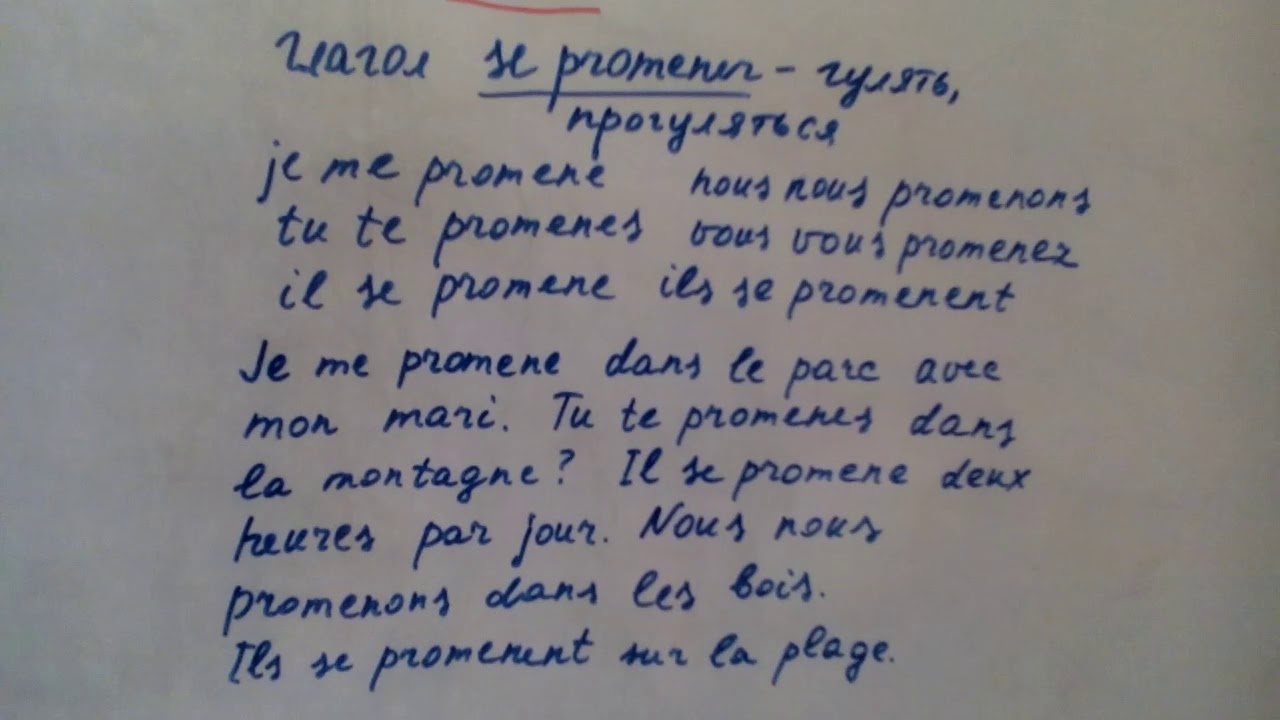 Глагол se promener - гулять,
прогуляться
je me promene nous nous promenons
tu te promenes vous vous promenez
il se promene ils se promenent
Je me promene dans le parc avec
mon mari. Tu te promenes dans
la montagne? Il se promene deux
heures par jour. Nous nous
promenons dans les bois.
Ils se promenent sur la plage.